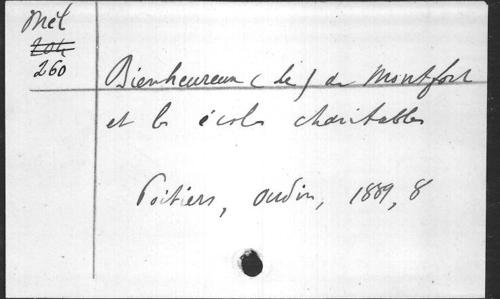 Mél
204
260
Bienheureux (le) de Montfort
et les écoles charitables
Poitiers, Oudin, 1889, 8